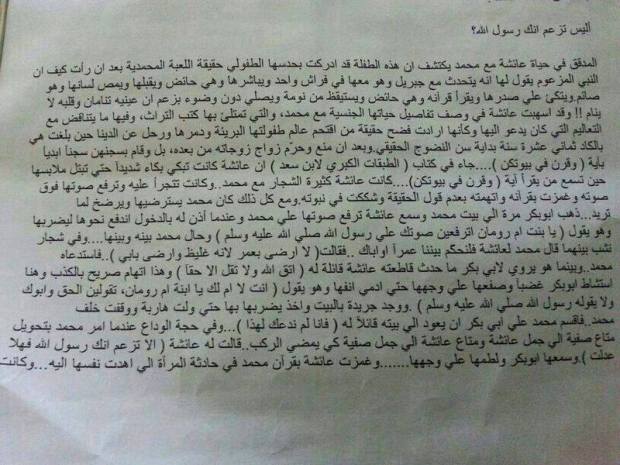 أليس تزعم انك رسول الله؟
المدقق في حياة عائشة مع محمد يكتشف ان هذه الطفلة قد ادركت بحدسها الطفولي حقيقة اللعبة المحمدية بعد ان رأت كيف ان
النبي المزعوم يقول لها انه يتحدث مع جبريل وهو معها في فراش واحد ويباشرها وهي حائض ويقبلها ويمص لسانها وهو
صائم.ويتكئ علي صدرها ويقرأ قرآنه وهي حائض ويستيقظ من نومة ويصلي دون وضوء بزعم ان عينيه تنامان وقلبه لا
ينام !! وقد اسهبت عائشة في وصف تفاصيل حياتها الجنسية مع محمد، والتي تمتلئ بها كتب التراث، وفيها ما يتناقض مع
التعاليم التي كان يدعو اليها وكأنها ارادت فضح حقيقة من اقتحم عالم طفولتها البريئة ودمرها ورحل عن الدينا حين بلغت هي
بالكاد ثماني عشرة سنة بداية سن النضوج الحقيقي.وبعد ان منع وحرّم زواج زوجاته من بعده، بل وقام بسجنهن سجناً ابدياً
بأية ( وقرن في بيوتكن )....جاء في كتاب ( الطبقات الكبري لابن سعد ) ان عائشة كانت تبكي بكاء شديداً حتي تبتل ملابسها
حين تسمع من يقرأ آية ( وقرن في بيوتكن)....كانت عائشة كثيرة الشجار مع محمد..وكانت تتجرأ عليه وترفع صوتها فوق
صوته وغمزت بقرآنه واتهمته بعدم قول الحقيقة وشككت في نبوته.ومع كل ذلك كان محمد يسترضيها ويرضخ لما
تريد...ذهب ابوبكر مرة الي بيت محمد وسمع عائشة ترفع صوتها علي محمد وعندما أذن له بالدخول اندفع نحوها ليضربها
وهو يقول ( يا بنت ام رومان اترفعين صوتك علي رسول الله صلي الله عليه وسلم ) وحال محمد بينه وبينها....وفي شجار
نشب بينهما قال محمد لعائشة فلنحكم بيننا عمراً اواباك ..فقالت( لا ارضى بعمر لانه غليظ وارضى بابي )..فاستدعاه
محمد..وبينما هو يروي لابي بكر ما حدث قاطعته عائشة قائلة له ( اتق الله ولا تقل الا حقاً ) وهذا اتهام صريح بالكذب وهنا
استشاط ابوبكر غضباً وصفعها علي وجهها حتي ادمي انفها وهو يقول ( انت لا ام لك يا ابنة ام رومان، تقولين الحق وابوك
ولا يقوله رسول الله صلي الله عليه وسلم ) .ووجد جريدة بالبيت واخذ يضربها بها حتي ولت هاربة ووقفت خلف
محمد..فاقسم محمد علي أبي بكر ان يعود الي بيته قائلاً له ( فانا لم ندعك لهذا )...وفي حجة الوداع عندما امر محمد بتحويل
متاع صفية الي جمل عائشة ومتاع عائشة الي جمل صفية كي يمضي الركب..قالت له عائشة ( الا تزعم انك رسول الله فهلا
عدلت ).وسمعها ابوبكر ولطمها علي وجهها.......وغمزت عائشة بقرآن محمد في حادثة المرأة الي اهدت نفسها اليه...وكانت